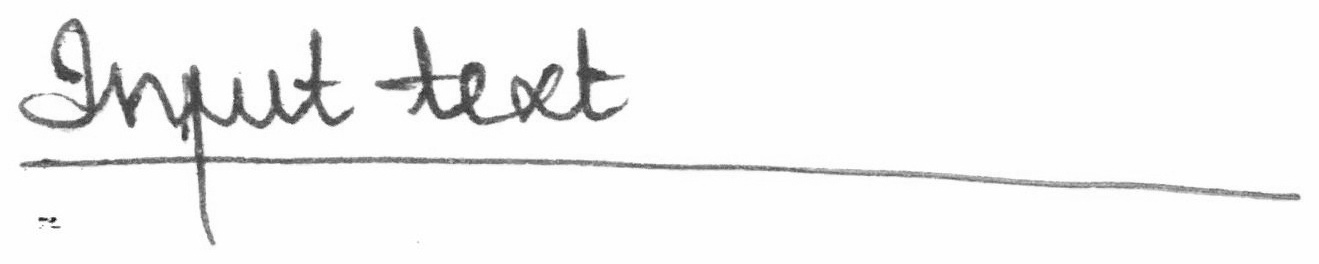 Input text